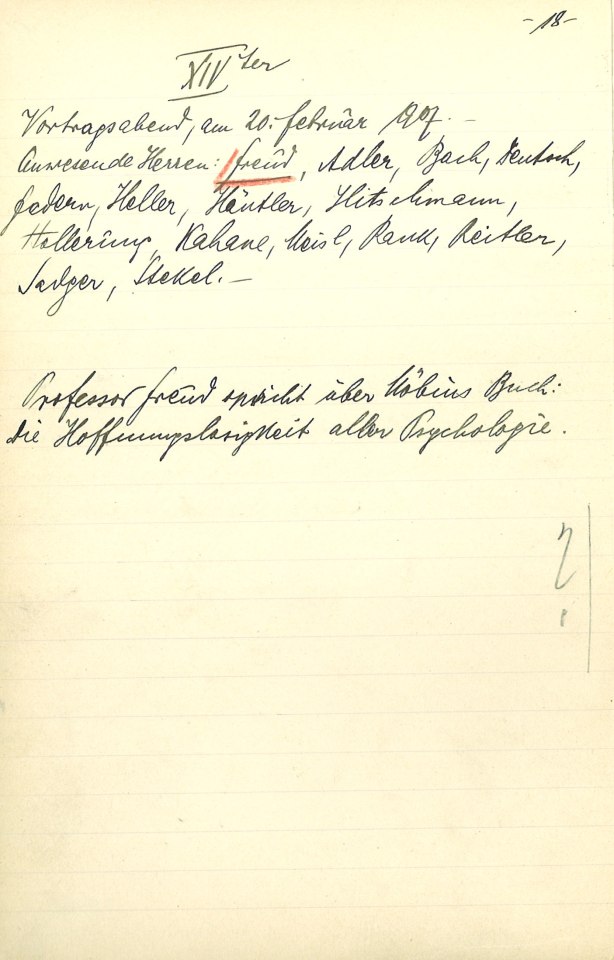 -18-
XIV ter
Vortragsabend, am 20. Februar 1907. -
Anwesende Herren: Freud, Adler, Bach, Deutsch,
Federn, Heller, Häutler, Hitschmann,
Hollerung, Kahane, Meisl, Rank, Reitler,
Sadger, Stekel. -
Professor Freud spricht über Möbius Buch:
die Hoffnungslosigkeit aller Psychologie.
?